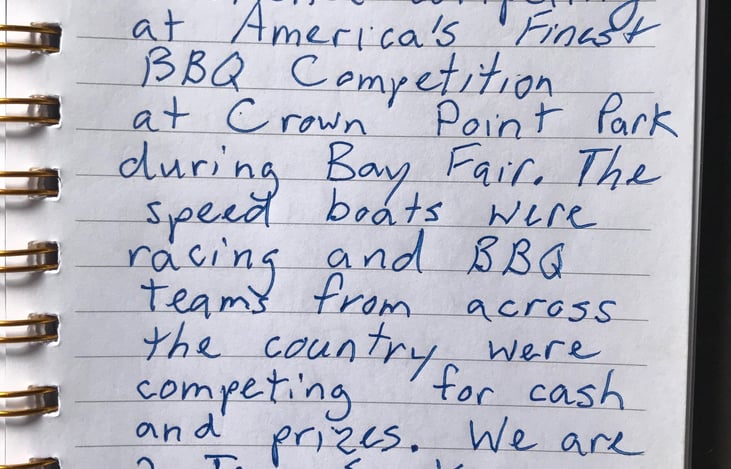 at America's Finest
BBQ Competition
at Crown Point Park
during Bay Fair. The
speed boats were
racing and BBQ
teams from across
the country were
competing for cash
and prizes. We are